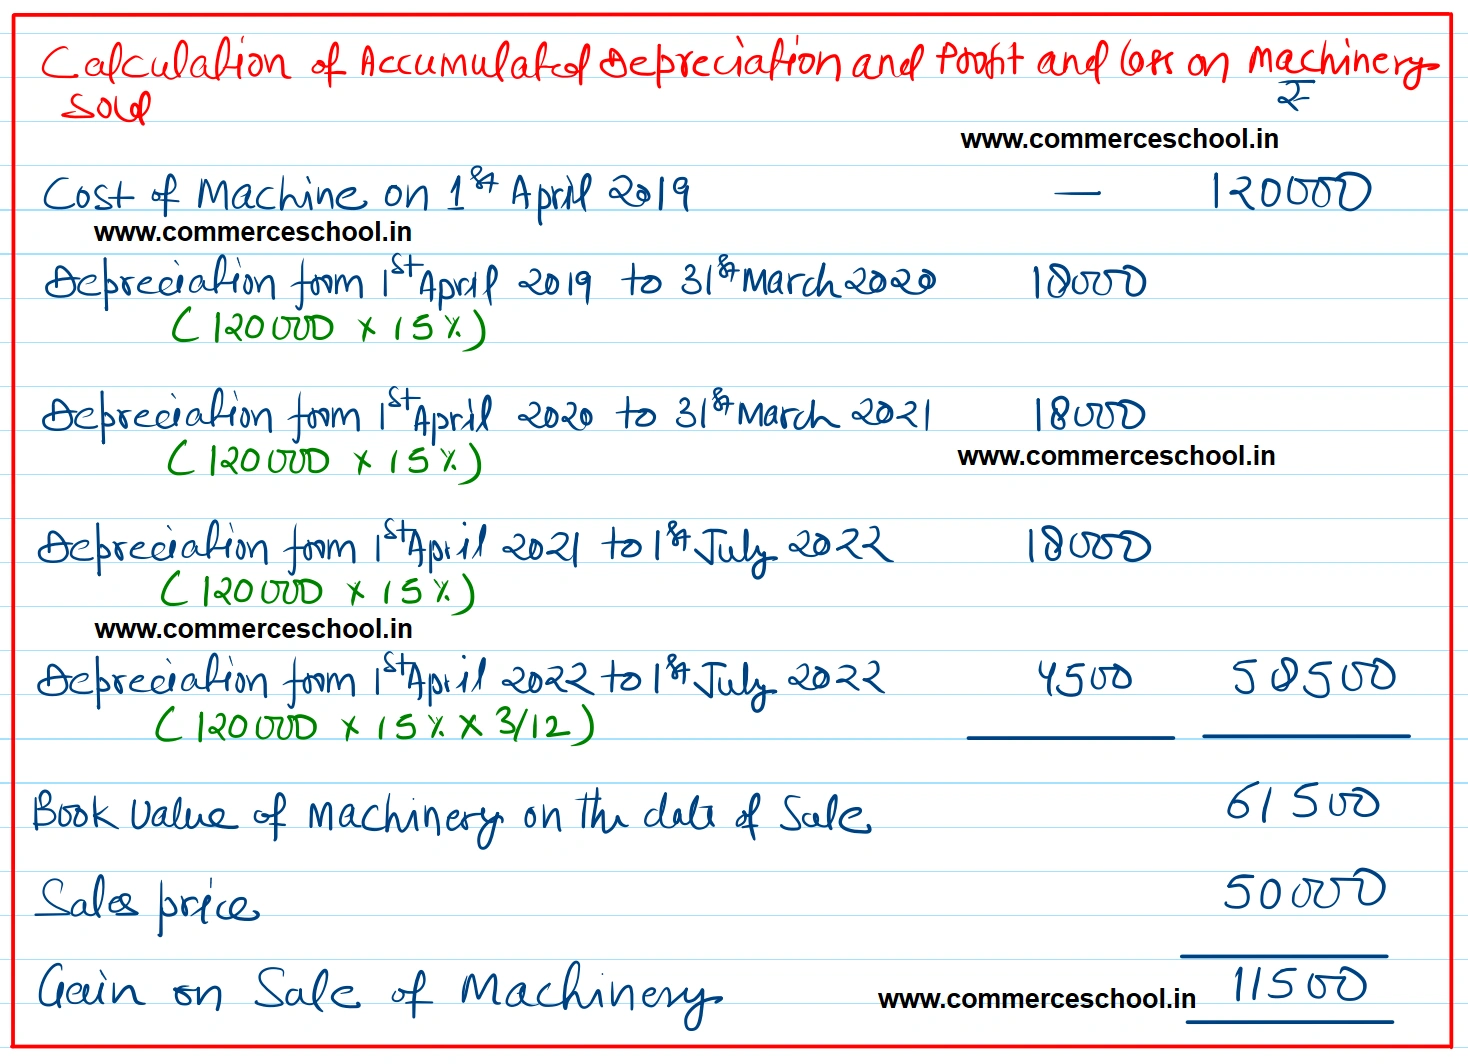 Calculation of Accumulated Depreciation and Profit and loss on Machinery
Sold
₹
www.commerceschool.in
Cost of Machine on 1st April 2019 — 120000
www.commerceschool.in
Depreciation from 1st April 2019 to 31st March 2020 18000
(120000 × 15%)
Depreciation from 1st April 2020 to 31st March 2021 18000
(120000 × 15%)
www.commerceschool.in
Depreciation from 1st April 2021 to 1st July 2022 18000
(120000 × 15%)
www.commerceschool.in
Depreciation from 1st April 2022 to 1st July 2022 4500 58500
(120000 × 15% × 3/12)
Book Value of Machinery on the date of Sale 61500
Sales price 50000
Gain on Sale of Machinery 11500
www.commerceschool.in